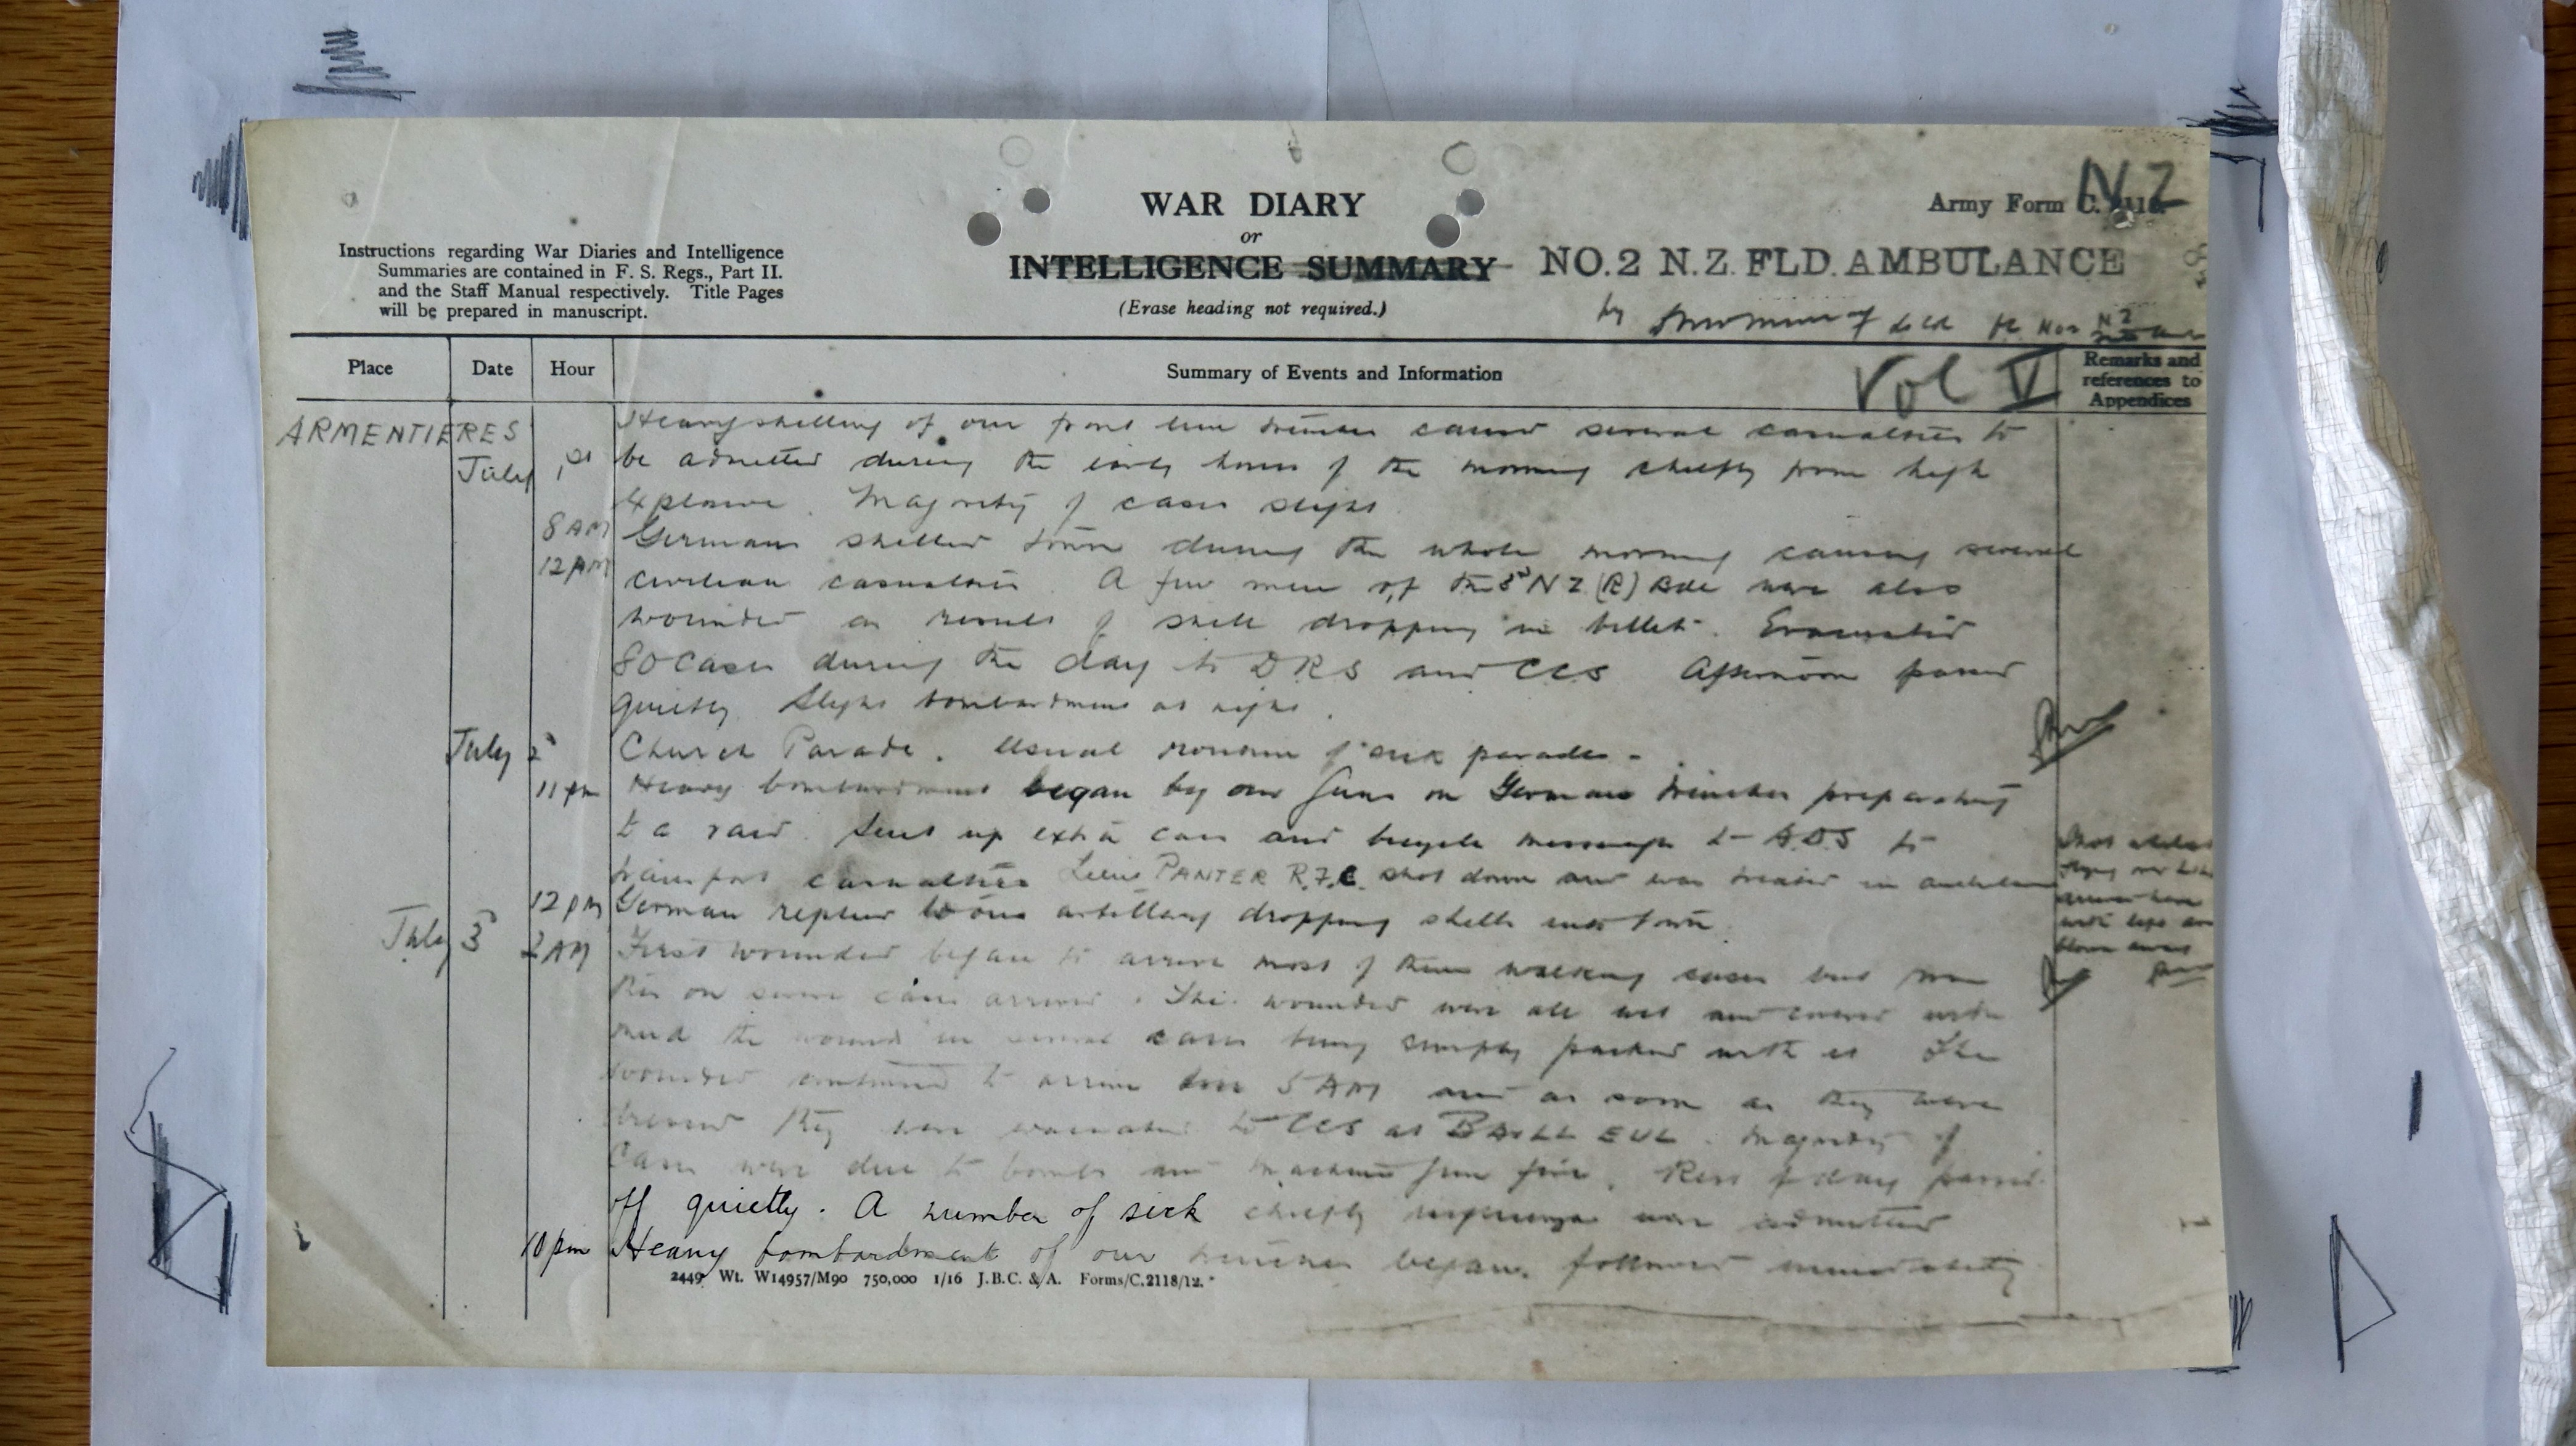 WAR DIARY
or
INTELLIGENCE SUMMARY
(Erase heading not required.)
Instructions regarding War Diaries and Intelligence
Summaries are contained in F. S. Regs., Part II.
and the Staff Manual respectively. Title Pages
will be prepared in manuscript.
Army Form C.
NZ
NO.2 N.Z. FLD. AMBULANCE
Vol V
Place
Date
Hour
Summary of Events and Information
Remarks and
references to
Appendices
ARMENTIERES
July 1st
Heavy shelling of our front line trenches caused several casualties to
be admitted during the early hours of the morning chiefly from high
explosive. Majority of cases slight.
8 AM
12 PM
Germans shelled town during the whole morning causing several
civilian casualties. A few men of the 3rd NZ (R) Bde were also
wounded as result of shell dropping in billet. Evacuated
80 cases during the day to DRS and CCS Afternoon passed
quietly. Slight bombardment at night.
July 2
Church Parade. Usual routine of sick parades -
11 pm
Heavy bombardment began by our guns on German trenches preparatory
to a raid. Sent up extra cars and bicycle to A.D.S to
transport casualties Lieut PANTER R.F.C. shot down and was treated in
12 pm
German replied to our artillery dropping shells into town.
July 3
2 AM
First wounded began to arrive most of them walking cases but from
this on severe cases arrived. The wounded were all wet and covered with
mud the wounds in several cases being simply packed with it The
wounded continued to arrive till 5 AM and as soon as they were
dressed they were evacuated to CCS at BAILLEUL. Majority of
cases were due to bombs and machine gun fire. Rest of day passed
off quietly. A number of sick chiefly were admitted
10 pm
Heavy bombardment of our trenches began, followed immediately
with legs
blown away
2449 Wt. W14957/M90 750,000 1/16 J.B.C. & A. Forms/C.2118/12.